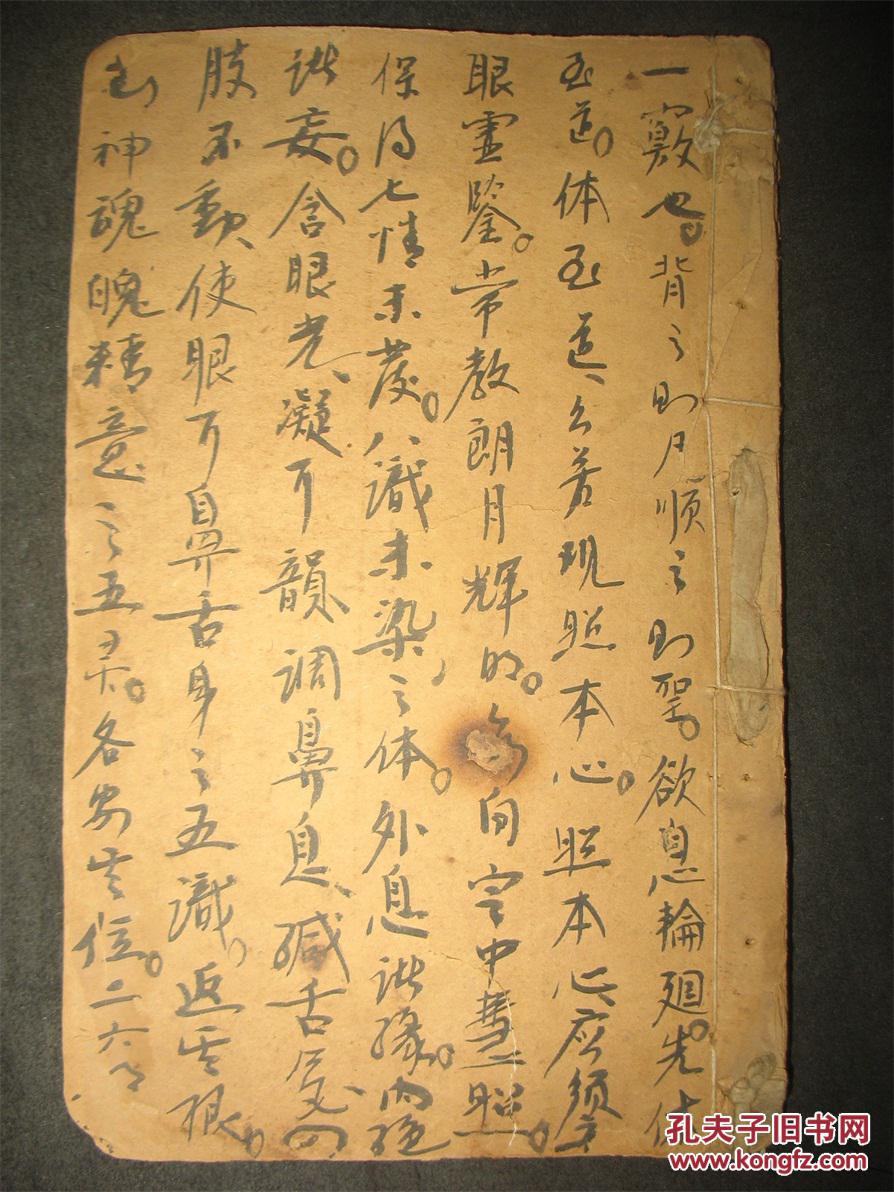 一竅也。背之則凡順之則聖。欲息輪廻。先体
至道。体至道、公若現照本心。照本心、应须
眼霊鑒。常教朗月輝明。自空中慧照。
保得七情未发。八識未染、之体。外息诸緣。内絕
诸妄。含眼光、凝耳韻、調鼻息、緘舌氣。四
肢不動、使眼耳鼻舌身之五識。返其根。
神魂魄精意之五灵。各安其位。二六
孔夫子旧书网
www.kongfz.com